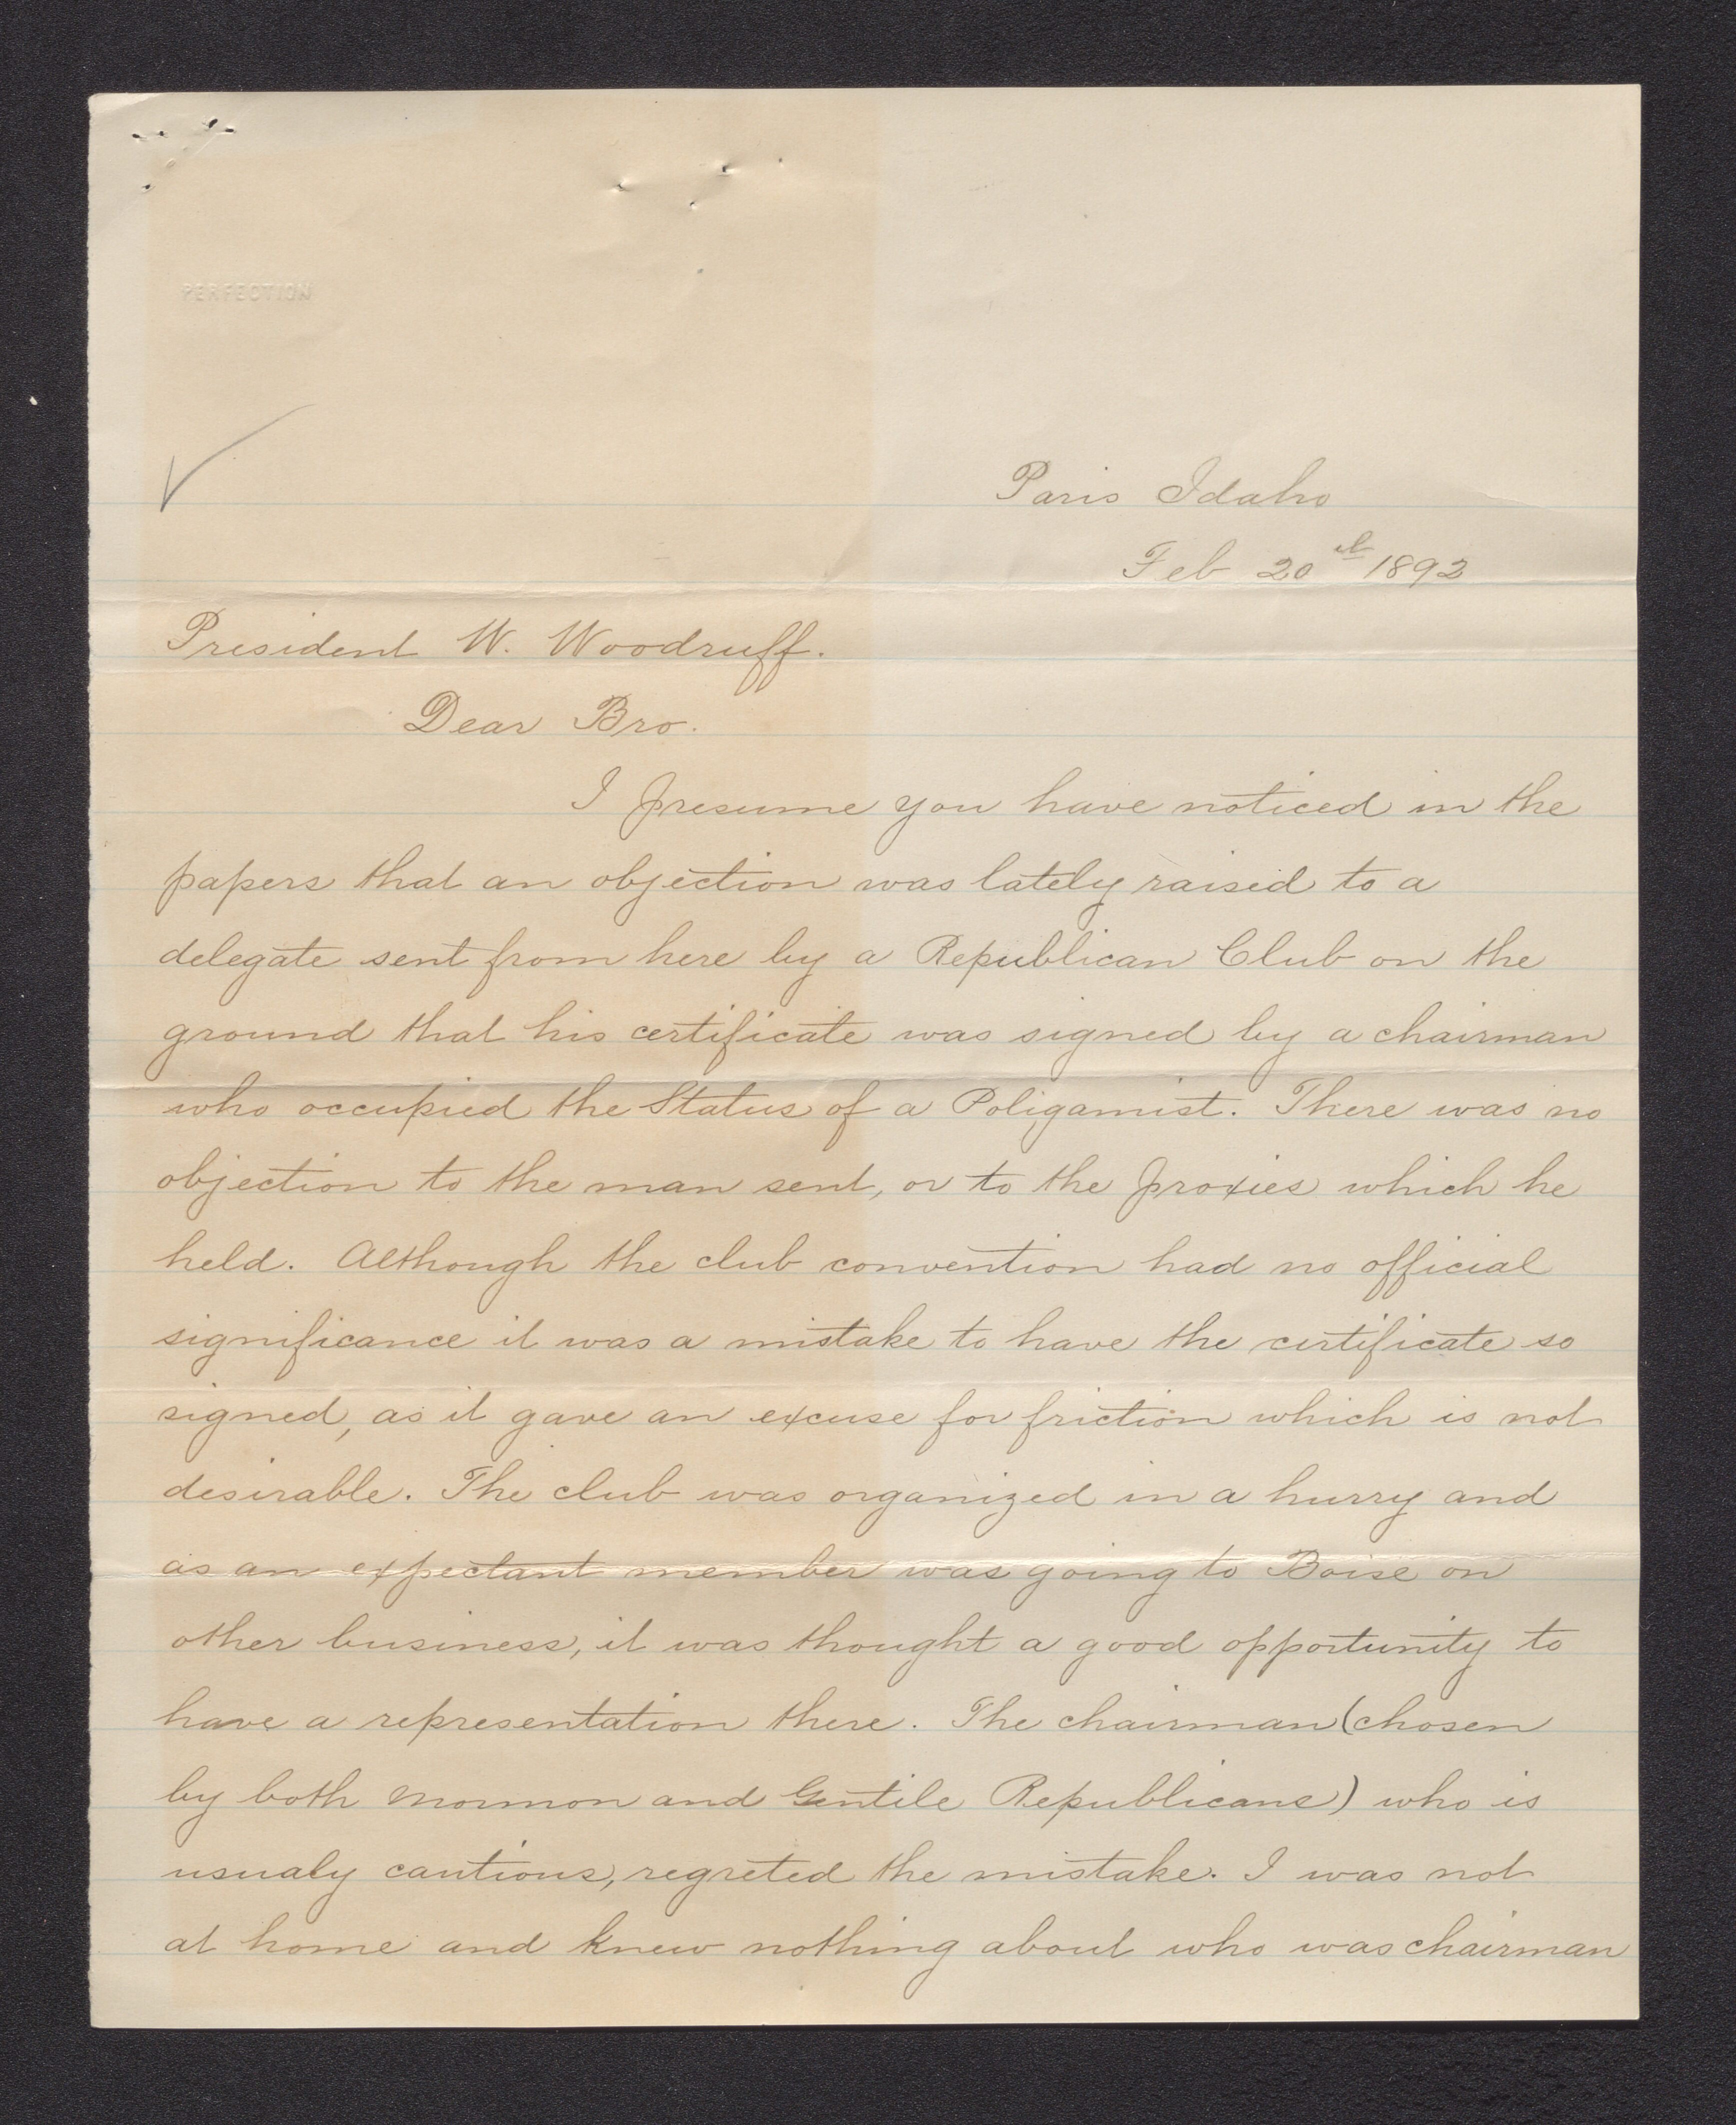 PERFECTION
Paris Idaho
Feb 20th 1892
President W. Woodruff.
Dear Bro.
I presume you have noticed in the
papers that an objection was lately raised to a
delegate sent from here by a Republican Club on the
ground that his certificate was signed by a chairman
who occupied the Status of a Poligamist. There was no
objection to the man sent, or to the proxies which he
held. Although the club convention had no official
significance it was a mistake to have the certificate so
signed, as it gave an excuse for friction which is not
desirable. The club was organized in a hurry and
as an expectant member was going to Boise on
other business, it was thought a good opportunity to
have a representation there. The chairman (chosen
by both Mormon and Gentile Republicans) who is
usualy cautious, regreted the mistake. I was not
at home and knew nothing about who was chairman